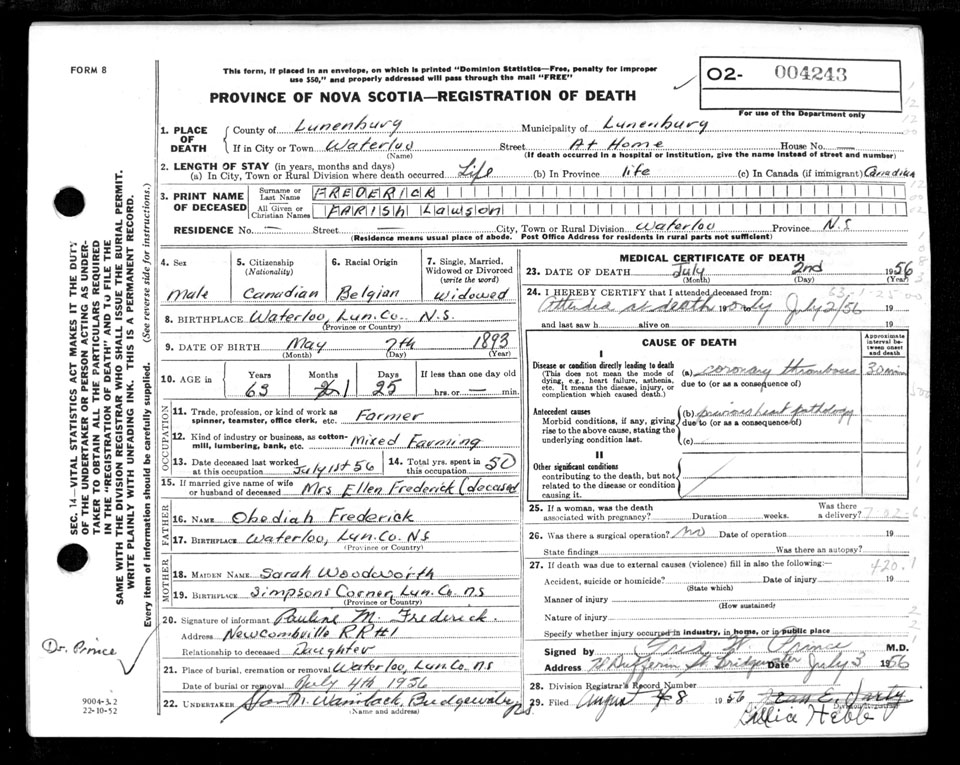 FORM 8
This form, if placed in an envelope, on which is printed "Dominion Statistics—Free, penalty for improper
use $50," and properly addressed will pass through the mail "FREE"
O2- 004243
For use of the Department only
PROVINCE OF NOVA SCOTIA—REGISTRATION OF DEATH
1. PLACE OF DEATH { County of Lunenburg Municipality of Lunenburg
If in City or Town Waterloo Street At Home House No. —
(Name) (If death occurred in a hospital or institution, give the name instead of street and number)
2. LENGTH OF STAY (in years, months and days)
(a) In City, Town or Rural Division where death occurred Life (b) In Province life (c) In Canada (if immigrant) Canadian
3. PRINT NAME OF DECEASED { Surname or Last Name FREDERICK
All Given or Christian Names FARISH Lawson
RESIDENCE No. — Street — City, Town or Rural Division Waterloo Province N.S
(Residence means usual place of abode. Post Office Address for residents in rural parts not sufficient)
4. Sex Male
5. Citizenship (Nationality) Canadian
6. Racial Origin Belgian
7. Single, Married, Widowed or Divorced (write the word) Widowed
8. BIRTHPLACE Waterloo, Lun.Co. N.S.
(Province or Country)
9. DATE OF BIRTH May 7th 1893
(Month) (Day) (Year)
10. AGE in { Years 63 Months 1 Days 25 If less than one day old
hrs. or — min.
OCCUPATION
11. Trade, profession, or kind of work as spinner, teamster, office clerk, etc. Farmer
12. Kind of industry or business, as cotton-mill, lumbering, bank, etc. Mixed Farming
13. Date deceased last worked at this occupation July 1st 56
14. Total yrs. spent in this occupation 50
15. If married give name of wife or husband of deceased Mrs Ellen Frederick (deceased
FATHER
16. NAME Obediah Frederick
17. BIRTHPLACE Waterloo, Lun.Co. N.S
(Province or Country)
MOTHER
18. MAIDEN NAME Sarah Woodworth
19. BIRTHPLACE Simpsons Corner, Lun.Co. n.s
(Province or Country)
20. Signature of informant Pauline M Frederick.
Address Newcombville R R #1
Relationship to deceased Daughter
21. Place of burial, cremation or removal Waterloo, Lun.Co. n.s
Date of burial or removal July 4th 1956
22. UNDERTAKER Bridgewater, n.s.
Name and address)
MEDICAL CERTIFICATE OF DEATH
23. DATE OF DEATH July 2nd 1956
(Month) (Day) (Year)
24. I HEREBY CERTIFY that I attended deceased from: 63-1-25
Attended at death only 19 to July 2/56 19
and last saw h alive on 19
CAUSE OF DEATH
Approximate interval between onset and death
I
Disease or condition directly leading to death
(This does not mean the mode of dying, e.g., heart failure, asthenia, etc. It means the disease, injury, or complication which caused death.)
(a) coronary thrombosis 30 min
due to (or as a consequence of)
Antecedent causes
Morbid conditions, if any, giving rise to the above cause, stating the underlying condition last.
(b) previous heart pathology
due to (or as a consequence of)
(c)
II
Other significant conditions
contributing to the death, but not related to the disease or condition causing it.
25. If a woman, was the death associated with pregnancy? Duration weeks. Was there a delivery? 7-02-6
26. Was there a surgical operation? no Date of operation 19
State findings Was there an autopsy?
27. If death was due to external causes (violence) fill in also the following:— 420.1
Accident, suicide or homicide? Date of injury 19
(State which)
Manner of injury
(How sustained)
Nature of injury
Specify whether injury occurred in industry, in home, or in public place
Signed by Fred W Prince M.D.
Address Dufferin St. Bridgewater Date July 3 1956
28. Division Registrar's Record Number
29. Filed August 8 1956
Lillia Hebb
Division Registrar
SEC. 14—VITAL STATISTICS ACT MAKES IT THE DUTY
OF THE UNDERTAKER OR PERSON ACTING AS UNDER-
TAKER TO OBTAIN ALL THE PARTICULARS REQUIRED
IN THE "REGISTRATION OF DEATH" AND TO FILE THE
SAME WITH THE DIVISION REGISTRAR WHO SHALL ISSUE THE BURIAL PERMIT.
WRITE PLAINLY WITH UNFADING INK. THIS IS A PERMANENT RECORD.
Every item of information should be carefully supplied. (See reverse side for instructions.)
Dr. Prince
9004-3.2
22-10-52